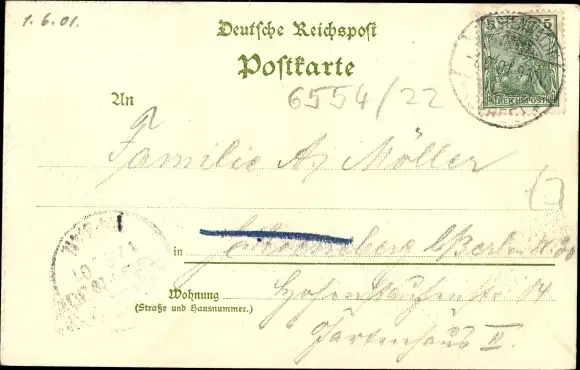 1.6.01.
Deutsche Reichspost
Postkarte
6554/22
An
Familie Ax Möller
REICHSPOST
in Schöneberg b/Berlin W. 30
Wohnung Hohenstaufenstr.
(Straße und Hausnummer.)
Gartenhaus II